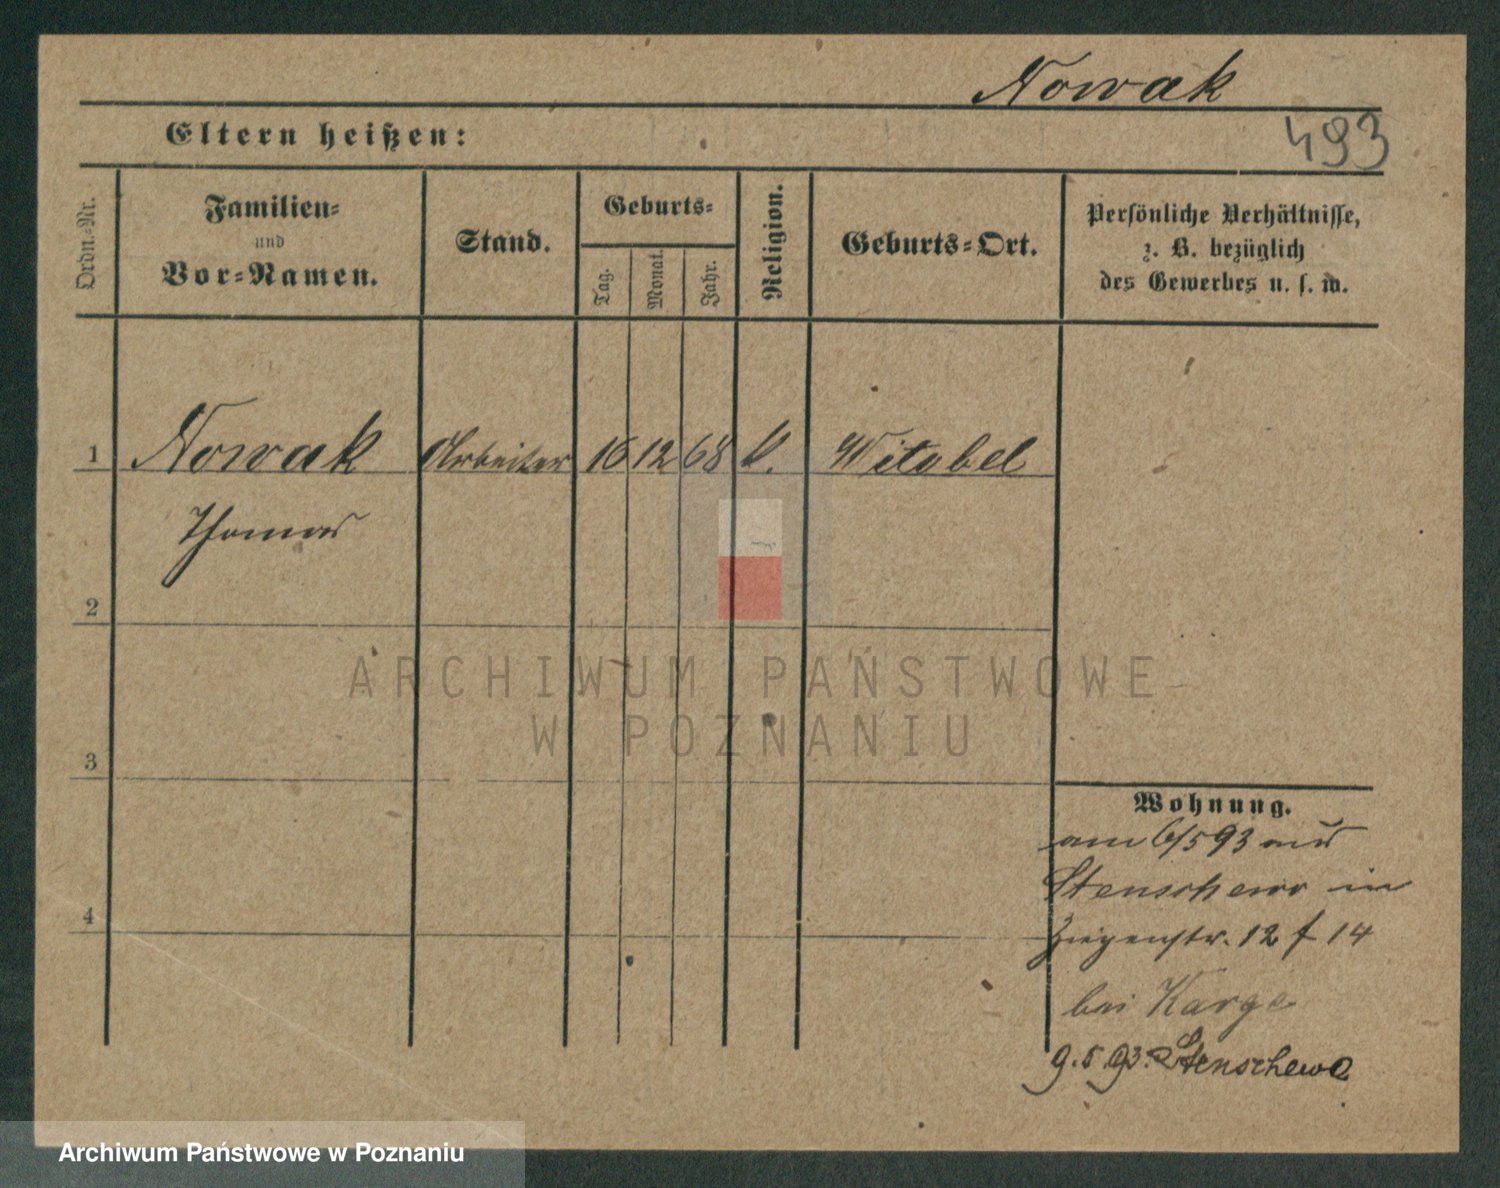 Nowak
Eltern heißen:
493
Ordn.-Nr.
Familien-
und
Vor-Namen.
Stand.
Geburts-
Tag.
Monat.
Jahr.
Religion.
Geburts-Ort.
Persönliche Verhältnisse,
z. B. bezüglich
des Gewerbes u. s. w.
1 Nowak Arbeiter 16 12 68 k. Witobel
Thomas
2
3
4
ARCHIWUM PAŃSTWOWE
W POZNANIU
Wohnung.
am 6/5 93 aus
Stenschewo in
Ziegenstr. 12 f 14
bei Karge
9.5.93. Stenschewo
Archiwum Państwowe w Poznaniu